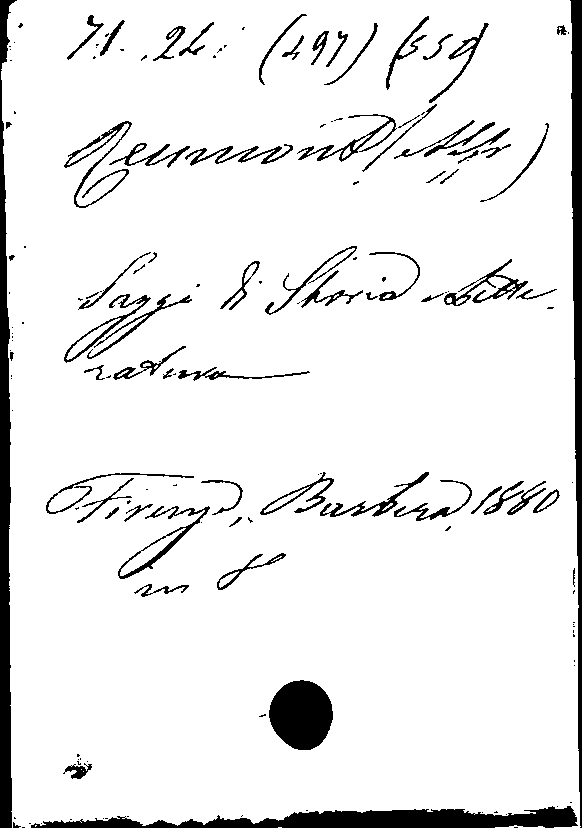 71. 24. (497) (550)
Reumont (Alfr)
Saggi di Storia e Lette-
ratura
Firenze, Barbera, 1880
in 8